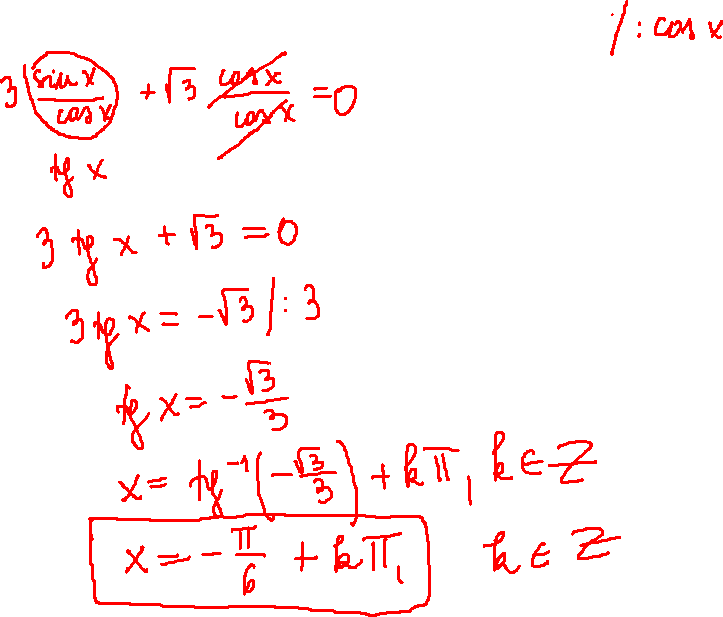 /: cos x
3 sin x / cos x + √3 cos x / cos x = 0
tg x
3 tg x + √3 = 0
3 tg x = -√3 /: 3
tg x = -√3/3
x = tg⁻¹(-√3/3) + kπ, k ∈ Z
x = -π/6 + kπ, k ∈ Z